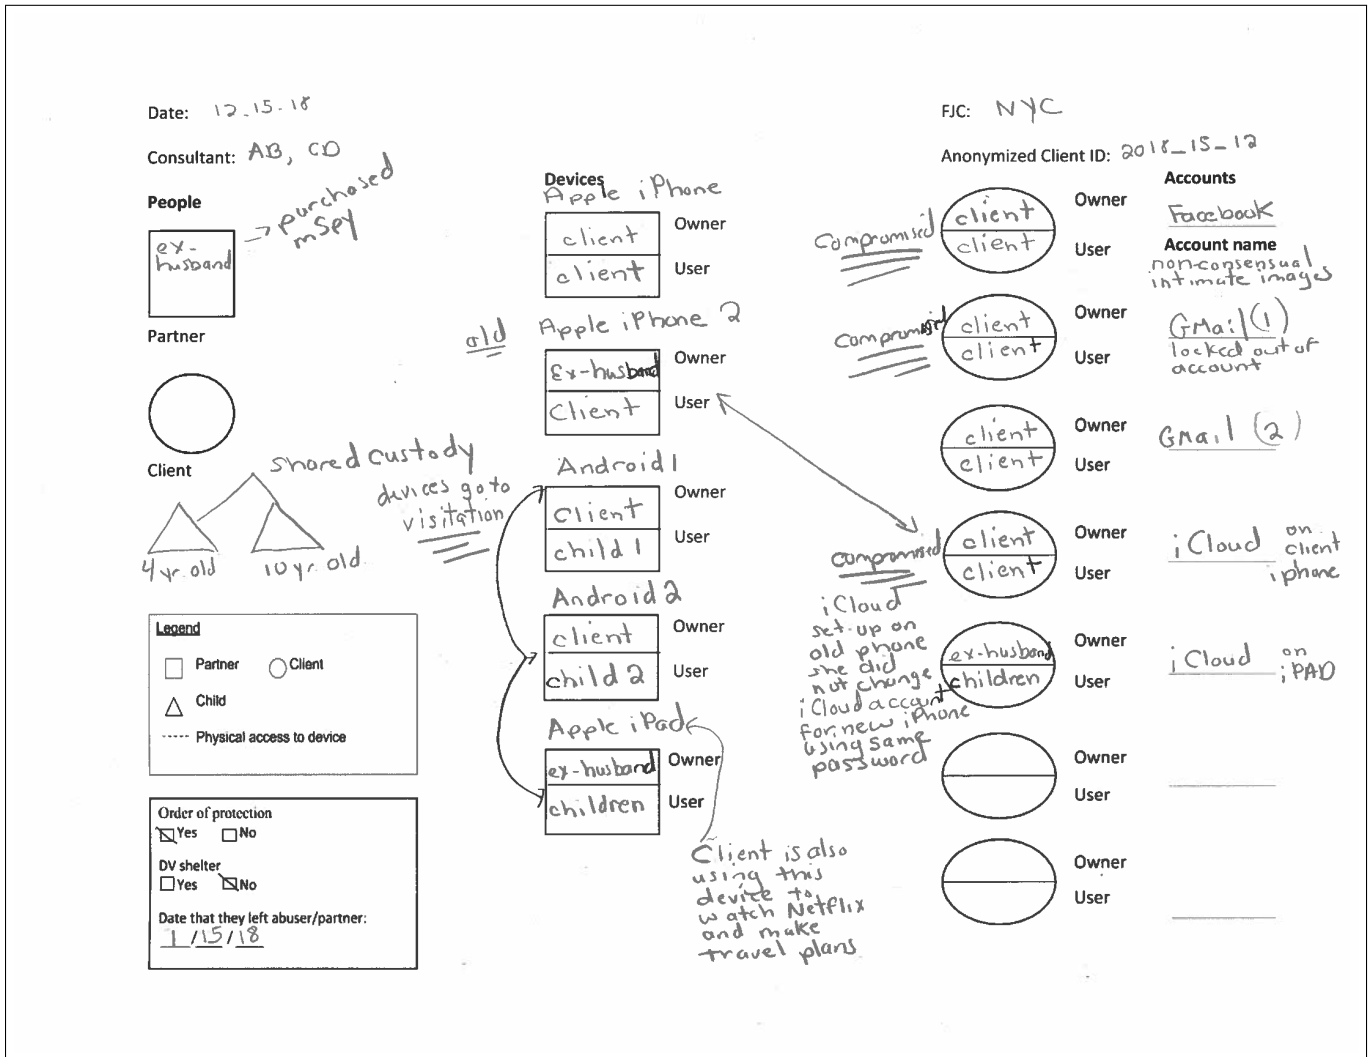 Date: 12-15-18
Consultant: AB, CD
People
ex-
husband
→ purchased
mSpy
Partner
Client
shared custody
devices go to
visitation
4 yr. old
10 yr. old
Legend
Partner
Client
Child
Physical access to device
Order of protection
Yes
No
DV shelter
Yes
No
Date that they left abuser/partner:
1/15/18
Devices
Apple iPhone
client
Owner
client
User
old
Apple iPhone 2
Ex-husband
Owner
Client
User
Android 1
Client
Owner
child 1
User
Android 2
client
Owner
child 2
User
Apple iPad
ex-husband
Owner
children
User
Client is also
using this
device to
watch Netflix
and make
travel plans
FJC: NYC
Anonymized Client ID: 2018_15_12
Accounts
Compromised
client
Owner
client
User
Facebook
Account name
non-consensual
intimate images
Compromised
client
Owner
client
User
GMail (1)
locked out of
account
client
Owner
client
User
GMail (2)
compromised
client
Owner
client
User
iCloud on
client
iphone
iCloud
set-up on
old phone
she did
not change
iCloud account
for new iPhone
using same
password
ex-husband
Owner
children
User
iCloud on
iPAD
Owner
User
Owner
User